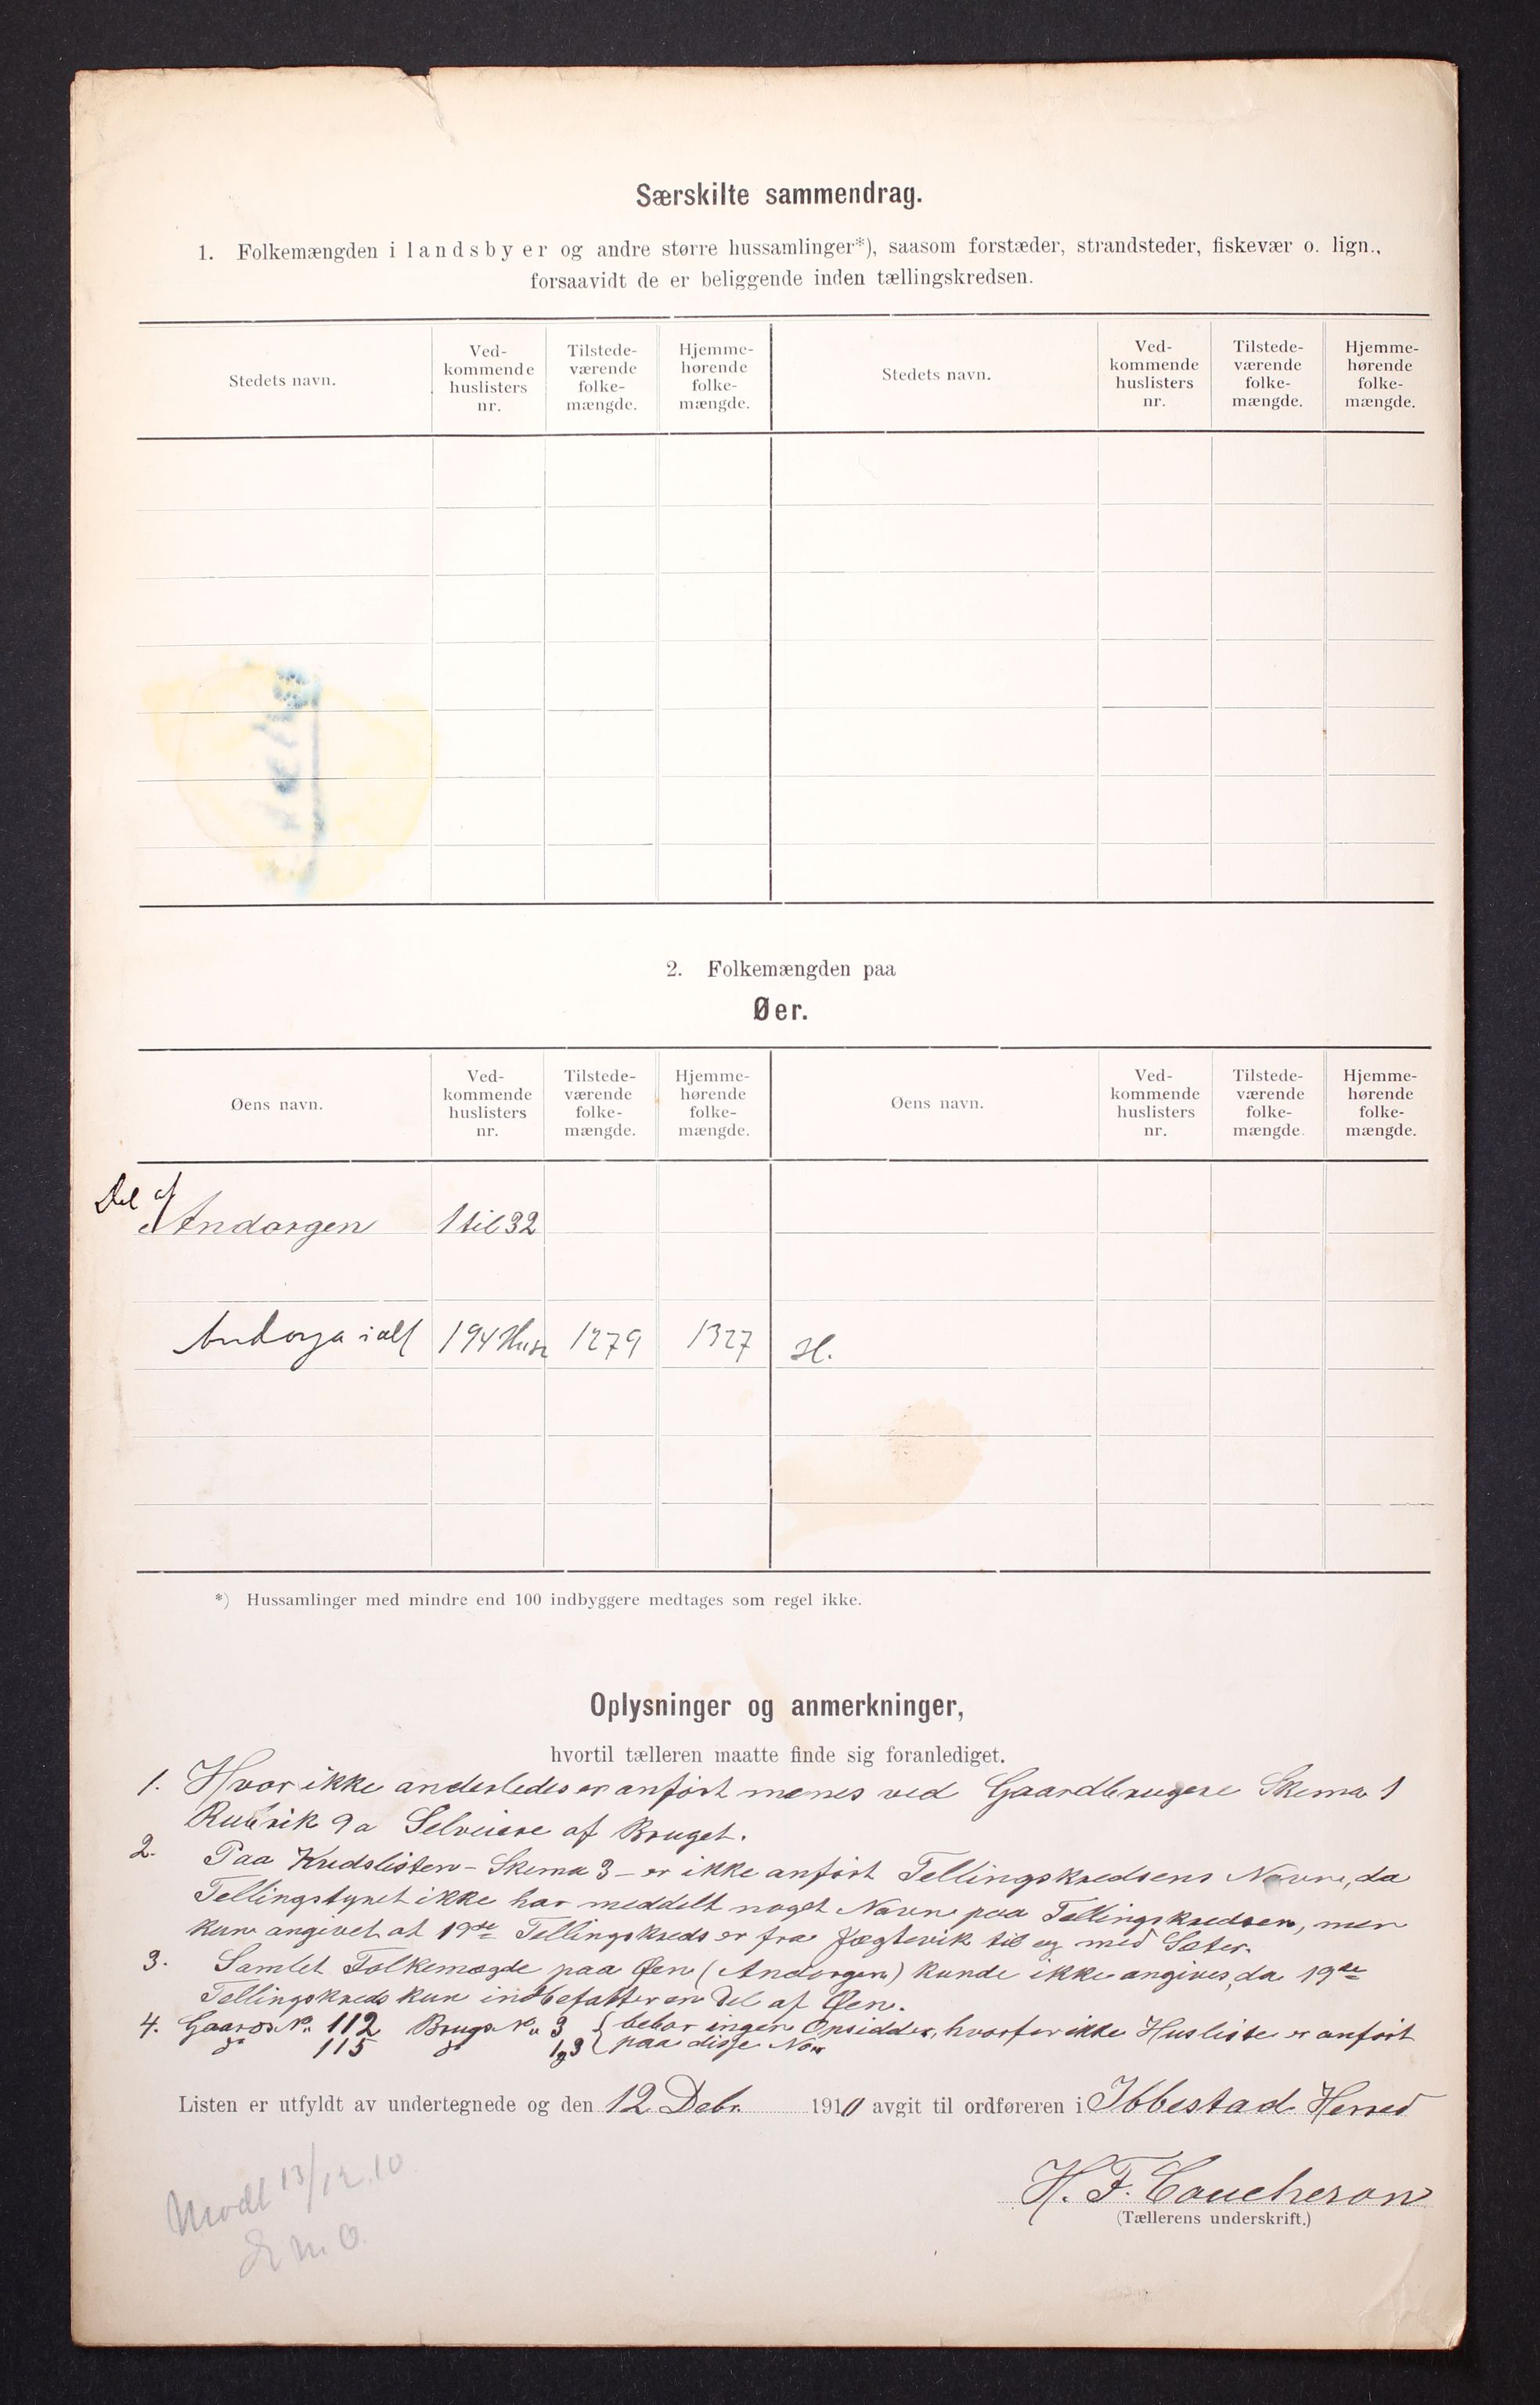 Særskilte sammendrag.
1. Folkemængden i landsbyer og andre større hussamlinger*), saasom forstæder, strandsteder, fiskevær o. lign.,
forsaavidt de er beliggende inden tællingskredsen.
Stedets navn.
Ved-
kommende
huslisters
nr.
Tilstede-
værende
folke-
mængde.
Hjemme-
hørende
folke-
mængde.
Stedets navn.
Ved-
kommende
huslisters
nr.
Tilstede-
værende
folke-
mængde.
Hjemme-
hørende
folke-
mængde.
2. Folkemængden paa
Øer.
Øens navn.
Ved-
kommende
huslisters
nr.
Tilstede-
værende
folke-
mængde.
Hjemme-
hørende
folke-
mængde.
Øens navn.
Ved-
kommende
huslisters
nr.
Tilstede-
værende
folke-
mængde.
Hjemme-
hørende
folke-
mængde.
Del af
Andorgen 1 til 32
Andorja ialt 194 Huse 1279 1327 H.
*) Hussamlinger med mindre end 100 indbyggere medtages som regel ikke.
Oplysninger og anmerkninger,
hvortil tælleren maatte finde sig foranlediget.
1. Hvor ikke anderledes er anført menes ved Gaardbrugere Skema 1
Rubrik 9a Selveiere af Bruget.
2. Paa Kredslisten - Skema 3 - er ikke anført Tellingskredsens Navn, da
Tellingstyret ikke har meddelt noget Navn paa Tellingskredsen, men
kun angivet at 19de Tellingskreds er fra Jægtevik til og med Sæter.
3. Samlet Folkemægde paa Øen (Andorgen) kunde ikke angives, da 19de
Tellingskreds kun indbefatter en Del af Øen.
4. Gaards No. 112 Brugs No. 3 { bebor ingen Opsidder, hvorfor ikke Husliste er anført
do 115 do 1 og 3 { paa disse No.
Listen er utfyldt av undertegnede og den 12 Debr. 1910 avgit til ordføreren i Ibbestad Herred
H. F. Coucheron
(Tællerens underskrift.)
Modt 13/12.10